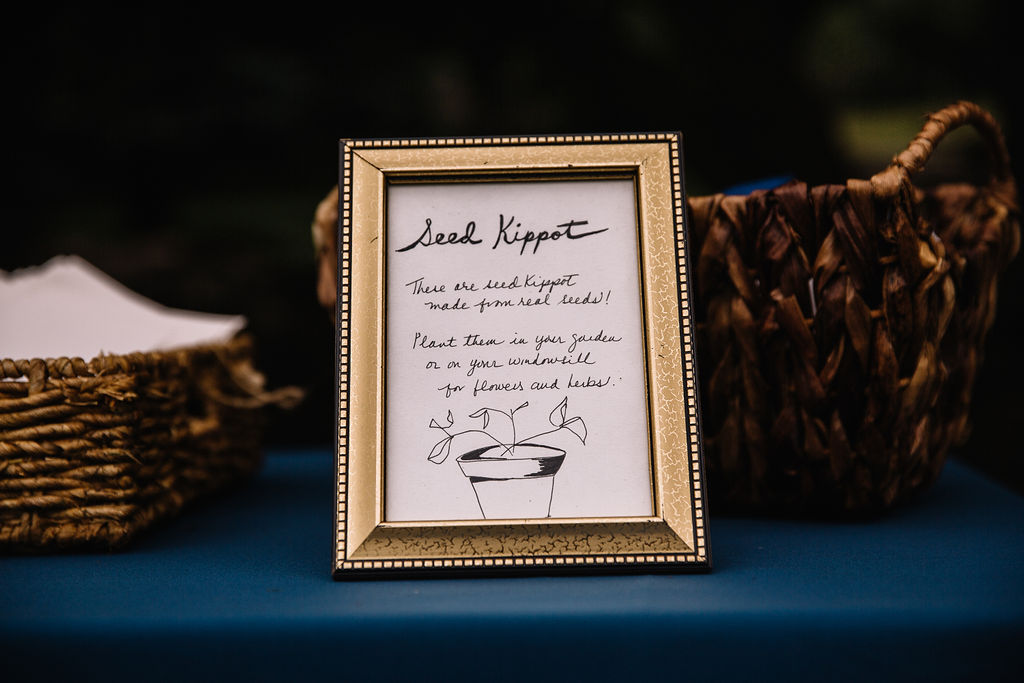 Seed Kippot
These are seed Kippot
made from real seeds!
Plant them in your garden
or on your windowsill
for flowers and herbs!